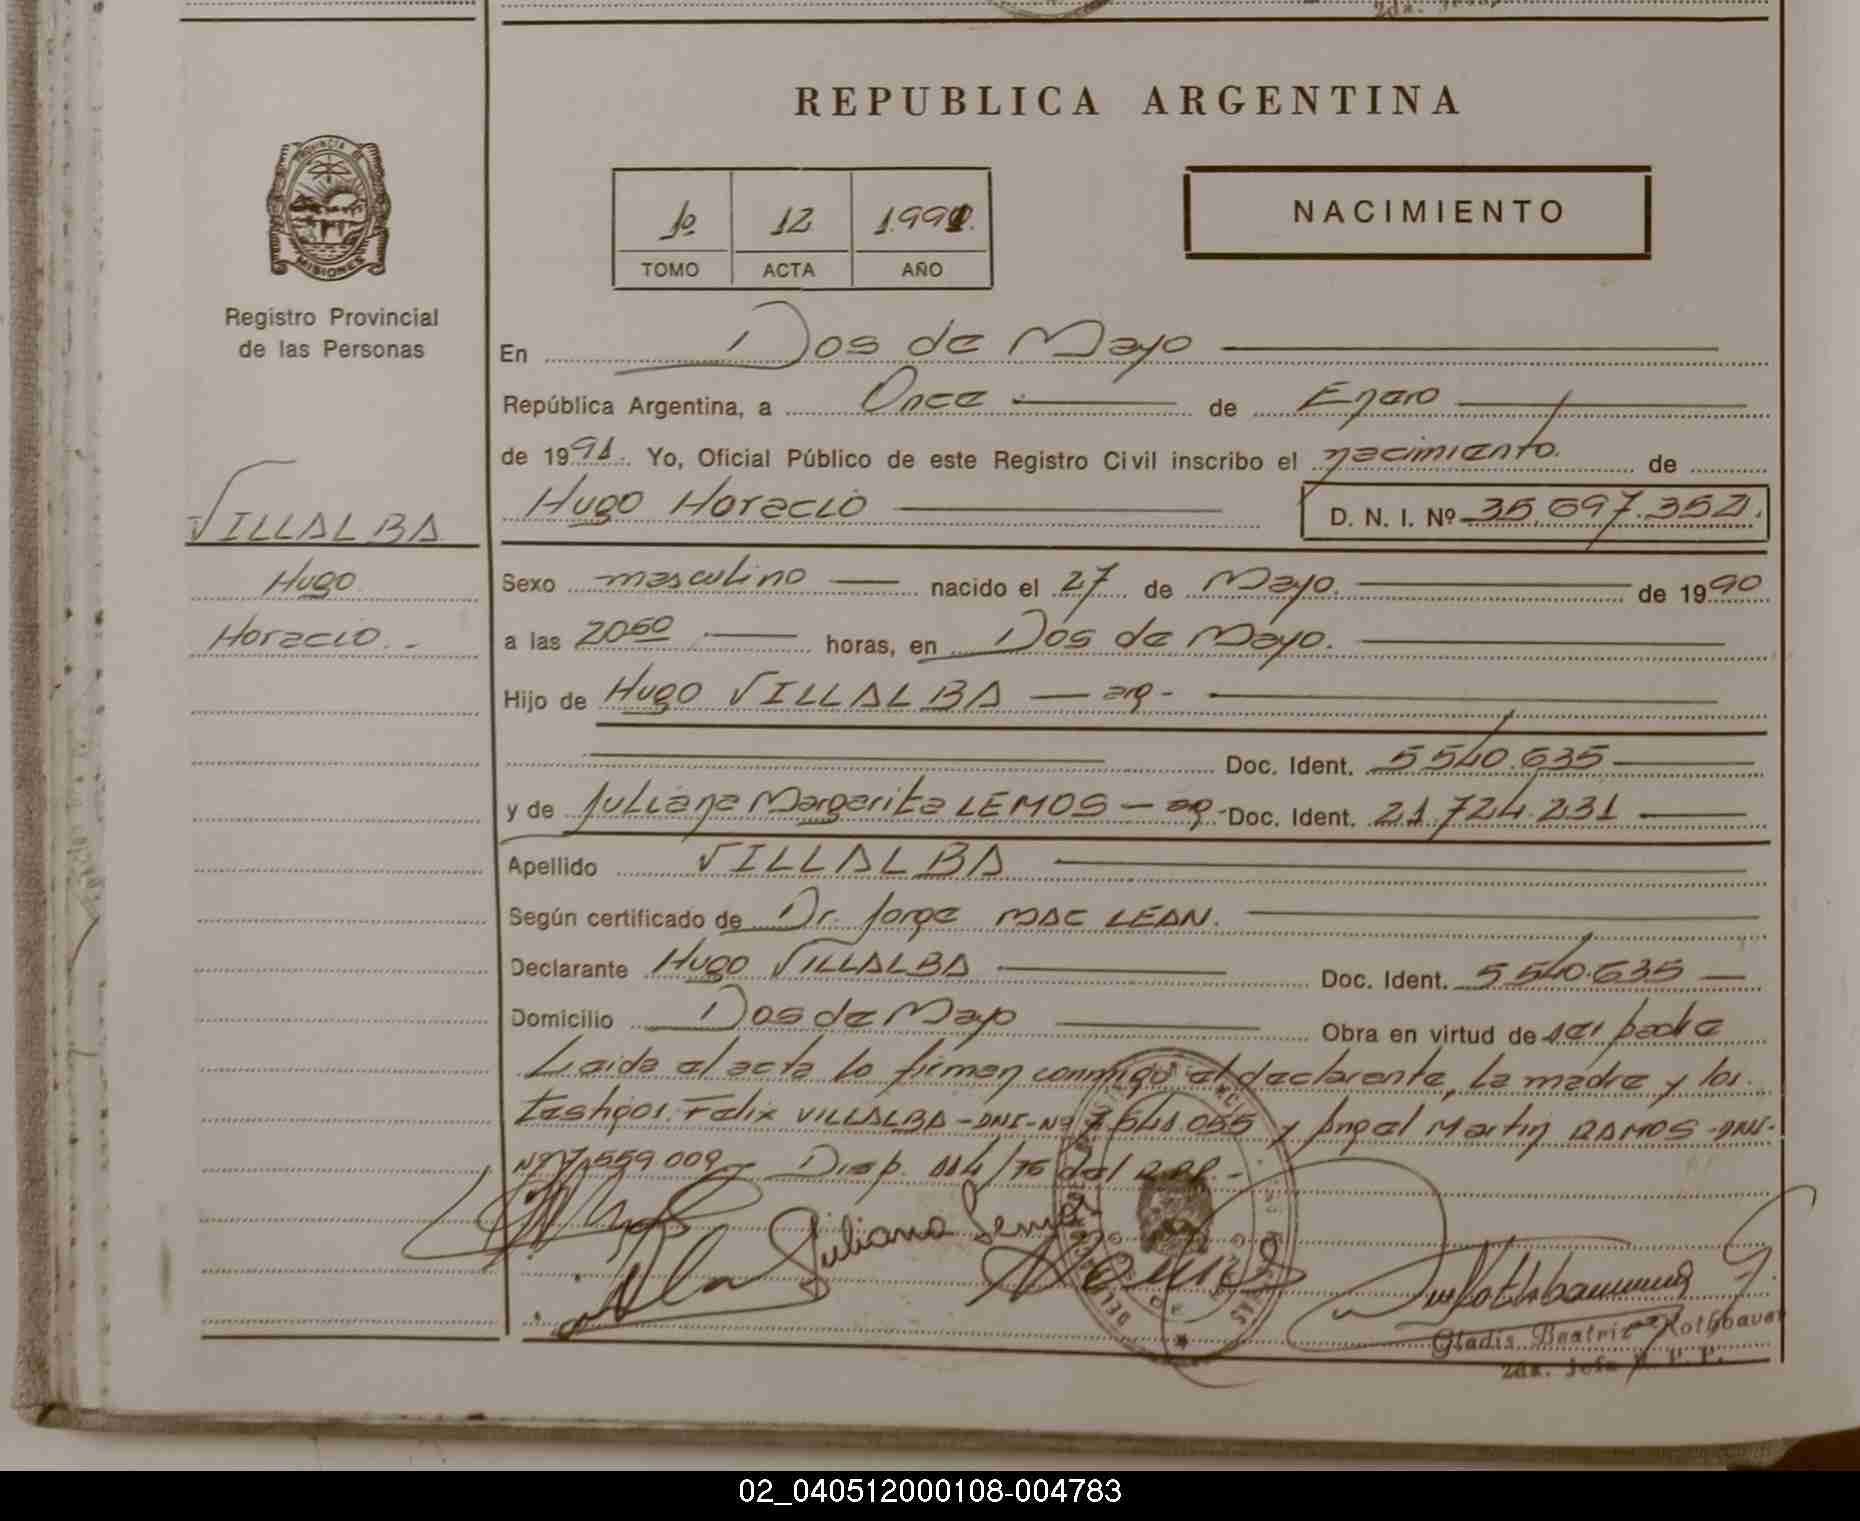 REPUBLICA ARGENTINA
PROVINCIA DE
MISIONES
Registro Provincial
de las Personas
1º 12 1.991.
TOMO ACTA AÑO
NACIMIENTO
En Dos de Mayo
República Argentina, a Once de Enero
de 1991. Yo, Oficial Público de este Registro Civil inscribo el nacimiento. de
Hugo Horacio
D. N. I. Nº 35.697.352.
VILLALBA
Hugo
Horacio.-
Sexo masculino nacido el 27 de Mayo. de 1990
a las horas, en Dos de Mayo.
Hijo de Hugo VILLALBA - arg -
Doc. Ident. 5540.635
y de Juliana Margarita LEMOS - arg - Doc. Ident. 21.724.231
Apellido VILLALBA
Según certificado de Dr. Jorge MAC LEAN.
Declarante Hugo VILLALBA Doc. Ident. 5540.635
Domicilio Dos de Mayo Obra en virtud de ser padre
Leida el acta lo firman conmigo el declarente, la madre y los
testigos. Felix VILLALBA - DNI - Nº 7.541.055 y Angel Martin RAMOS - DNI -
Nº 7.559.009 - Disp. 114/76 del R.P.P. -
Juliana Lemos
Ramos
Gladis Beatriz Rothbauer
2da. Jefa R. P. P.
02_040512000108-004783